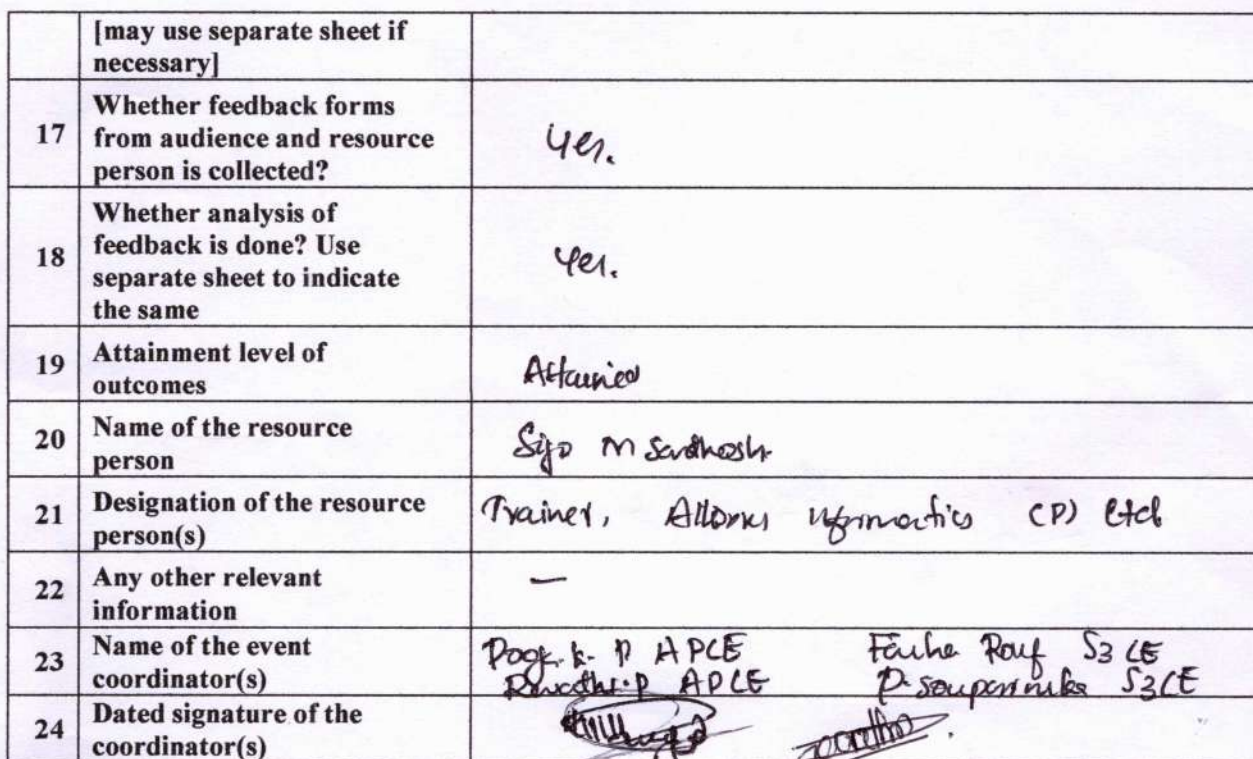 [may use separate sheet if
necessary]
17
Whether feedback forms
from audience and resource
person is collected?
Yes.
18
Whether analysis of
feedback is done? Use
separate sheet to indicate
the same
Yes.
19
Attainment level of
outcomes
Attained
20
Name of the resource
person
Sijo M Santhosh
21
Designation of the resource
person(s)
Trainer, Informatics (P) Ltd
22
Any other relevant
information
—
23
Name of the event
coordinator(s)
K. P APCE Rouf S3 CE
P APCE P. S3 CE
24
Dated signature of the
coordinator(s)